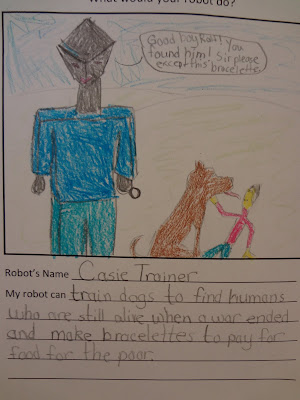 What would your robot do?
Good boy you
found him! Sir please
except this
bracelette.
Robot's Name Casie Trainer
My robot can train dogs to find humans
who are still alive when a war ended
and make bracelettes to pay for
food for the poor.